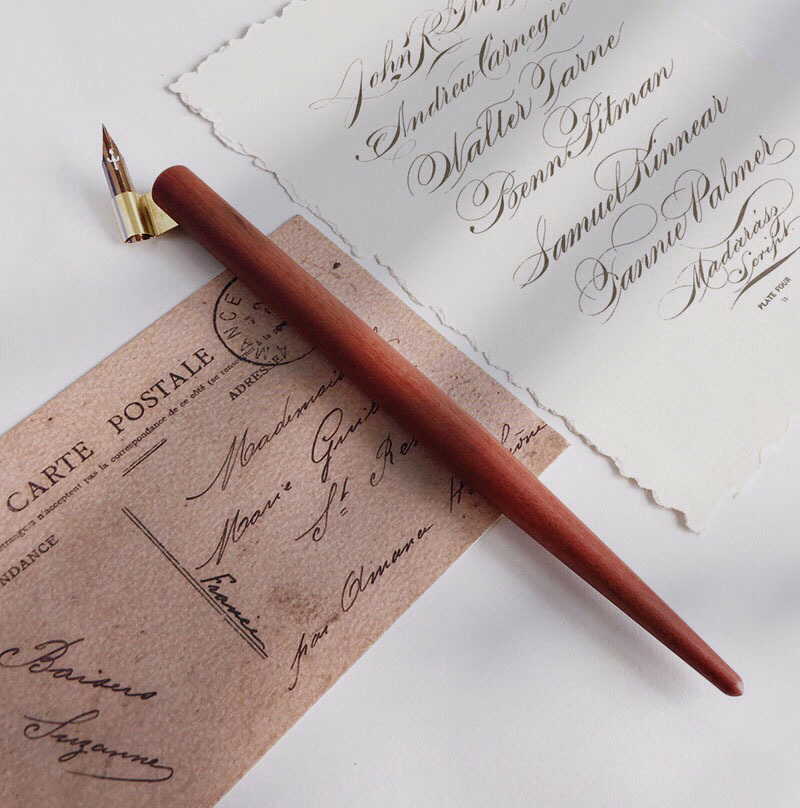 John R
Andrew Carnegie
Walter Tarne
Benn Pitman
Samuel Kinnear
Fannie Palmer
Madarász
Script.
PLATE FOUR
CARTE POSTALE
n'acceptent pas la correspondance de ce côté (se
NDANCE
ADRESSE
Mademoise
Marie Gui
St. Re
par Amance H Saône
France
Baisers
Suzanne